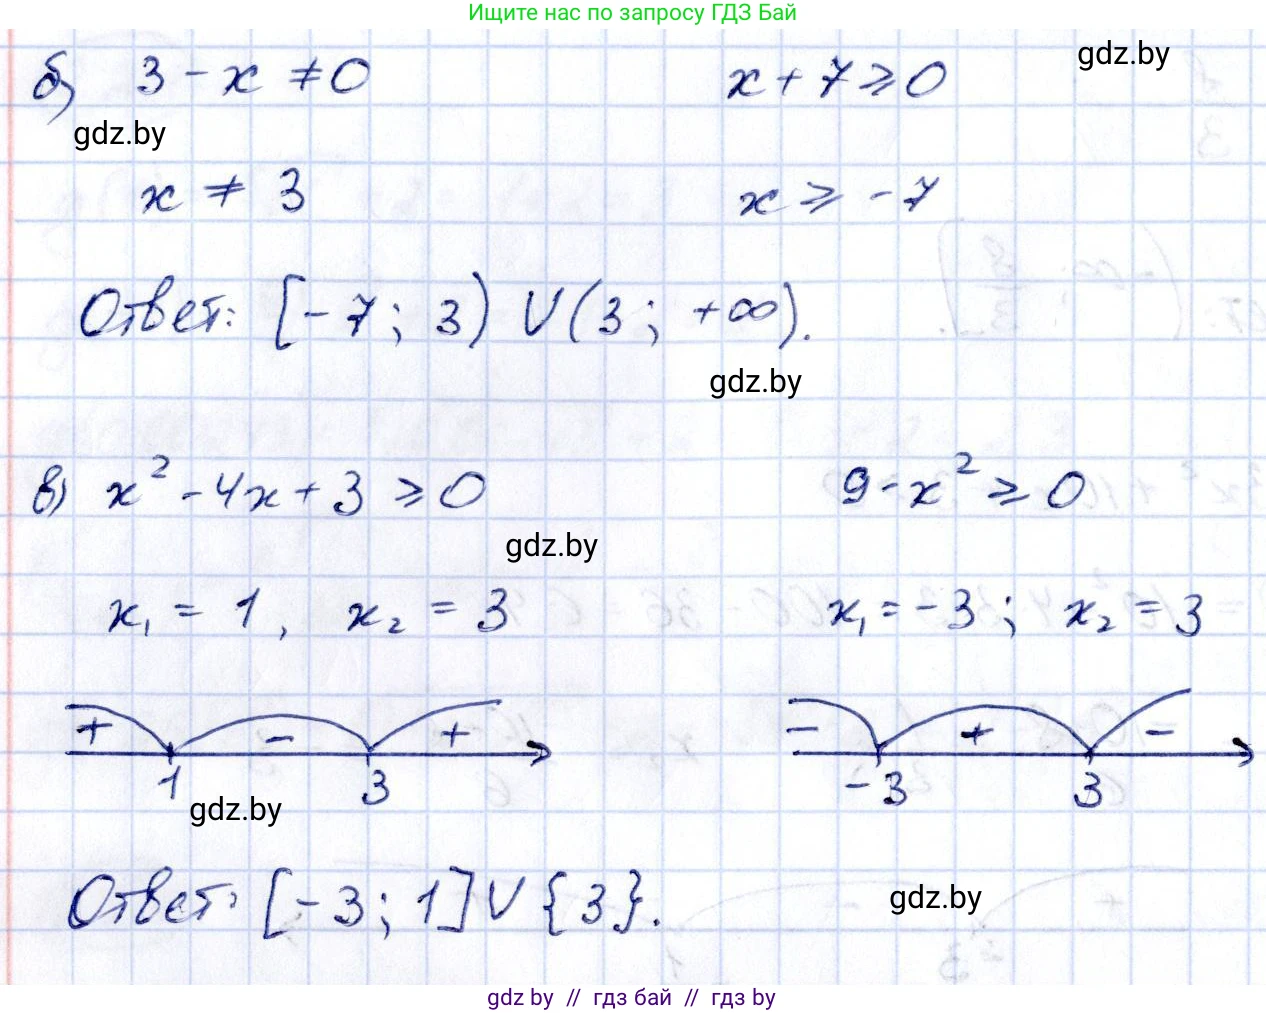 Ищите нас по запросу ГДЗ Бай
gdz.by
б) 3 - x ≠ 0 x + 7 ⩾ 0
gdz.by
x ≠ 3 x ⩾ -7
Ответ: [-7; 3) ∪ (3; +∞).
gdz.by
в) x² - 4x + 3 ⩾ 0 9 - x² ⩾ 0
gdz.by
x₁ = 1, x₂ = 3 x₁ = -3; x₂ = 3
+ - + - + -
1 3 -3 3
gdz.by
Ответ: [-3; 1] ∪ {3}.
gdz.by
gdz by // гдз бай // гдз by